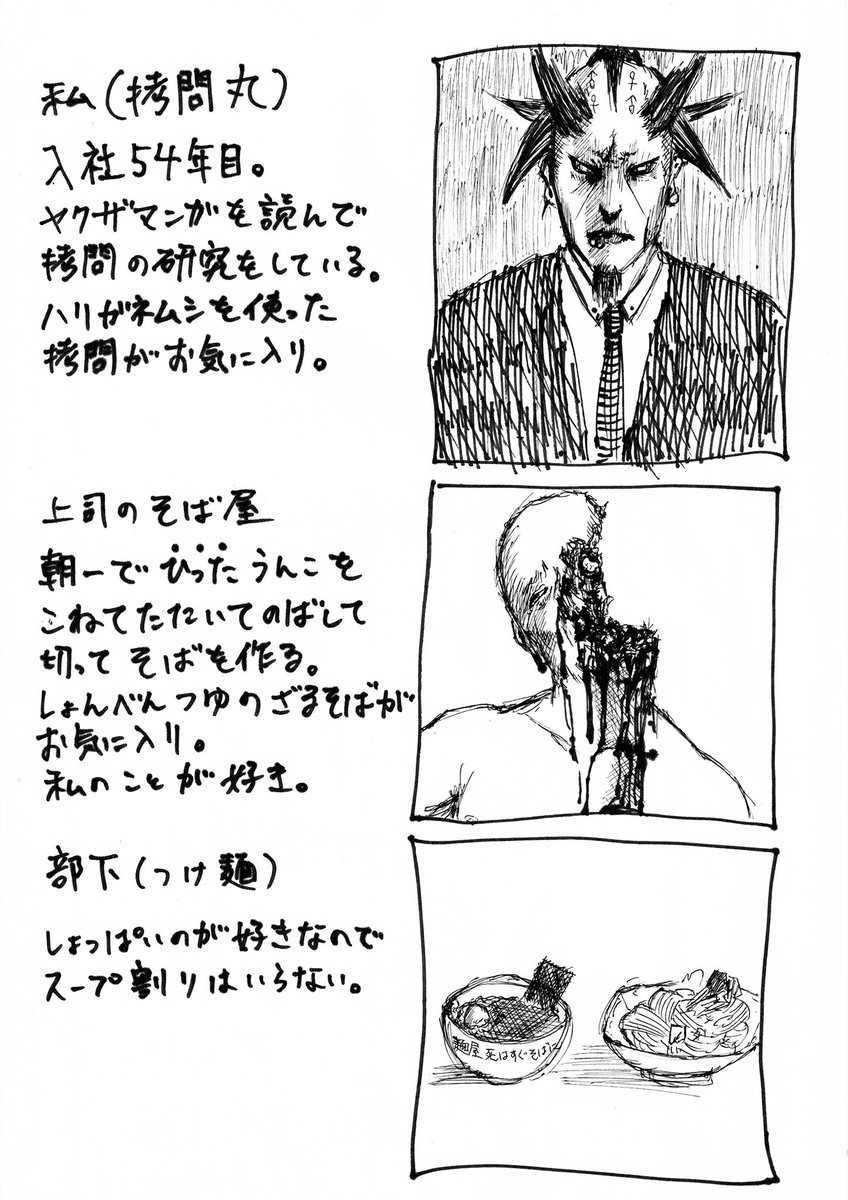 私(拷問丸)
入社54年目。
ヤクザマンガを読んで
拷問の研究をしている。
ハリガネムシを使った
拷問がお気に入り。
上司のそば屋
朝一でひったうんこを
こねてたたいてのばして
切ってそばを作る。
しょんべんつゆのざるそばが
お気に入り。
私のことが好き。
部下(つけ麺)
しょっぱいのが好きなので
スープ割りはいらない。
麺屋 死はすぐそばに